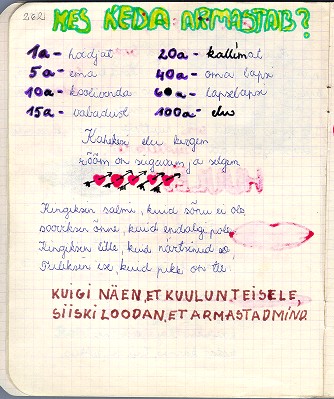 262
KES KEDA ARMASTAB?
1a - hoidjat 20a - kallimat
5a - ema 40a - oma lapsi
10a - koolivenda 60a - lapselapsi
15a - vabadust 100a - elu
Kahekesi elu kergem
rõõm on sügavam ja selgem
Kingiksin salmi, kuid sõnu ei ole,
sooviksin õnne, kuid endalgi pole,
Kingiksin lille, kuid närtsinud
Tuleksin ise, kuid pikk on tee.
KUIGI NÄEN, ET KUULUN TEISELE,
SIISKI LOODAN, ET ARMASTAD MIND.